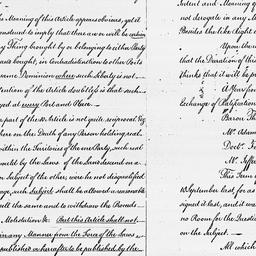 Meaning of this Article appears obvious, yet it
to imply that there are in the
Thing brought by or belonging to either Party
as bought, in Contradistinction to other Ports
same Dominion where such Liberty is not
tention of the Article doubtless is that such
yed at every Port and Place.
part of the Article is not quite reciprocal
here on the Death of any Person holding real
within the Territories of the one Party, such real
by the Laws of the Land descend on a
Subject of the other, were he not disqualified
age, such Subject shall be allowed a reasonable
sell the same and to withdraw the Proceeds
Molestation &c. But this Article shall not
in any Manner from the Force of the Laws
published or hereafter to be published by the
Intent and Meaning of
not derogate in any M
Besides the like Right
Upon the
that the Duration of this
thinks that it will be pr
A Year from
Exchange of Ratification
Baron Th
Mr. Adam
Doct. F
Mr. Jeffer
This
10 September last, for
signed it last, and it was
no Room for the
on the Subject.
All which